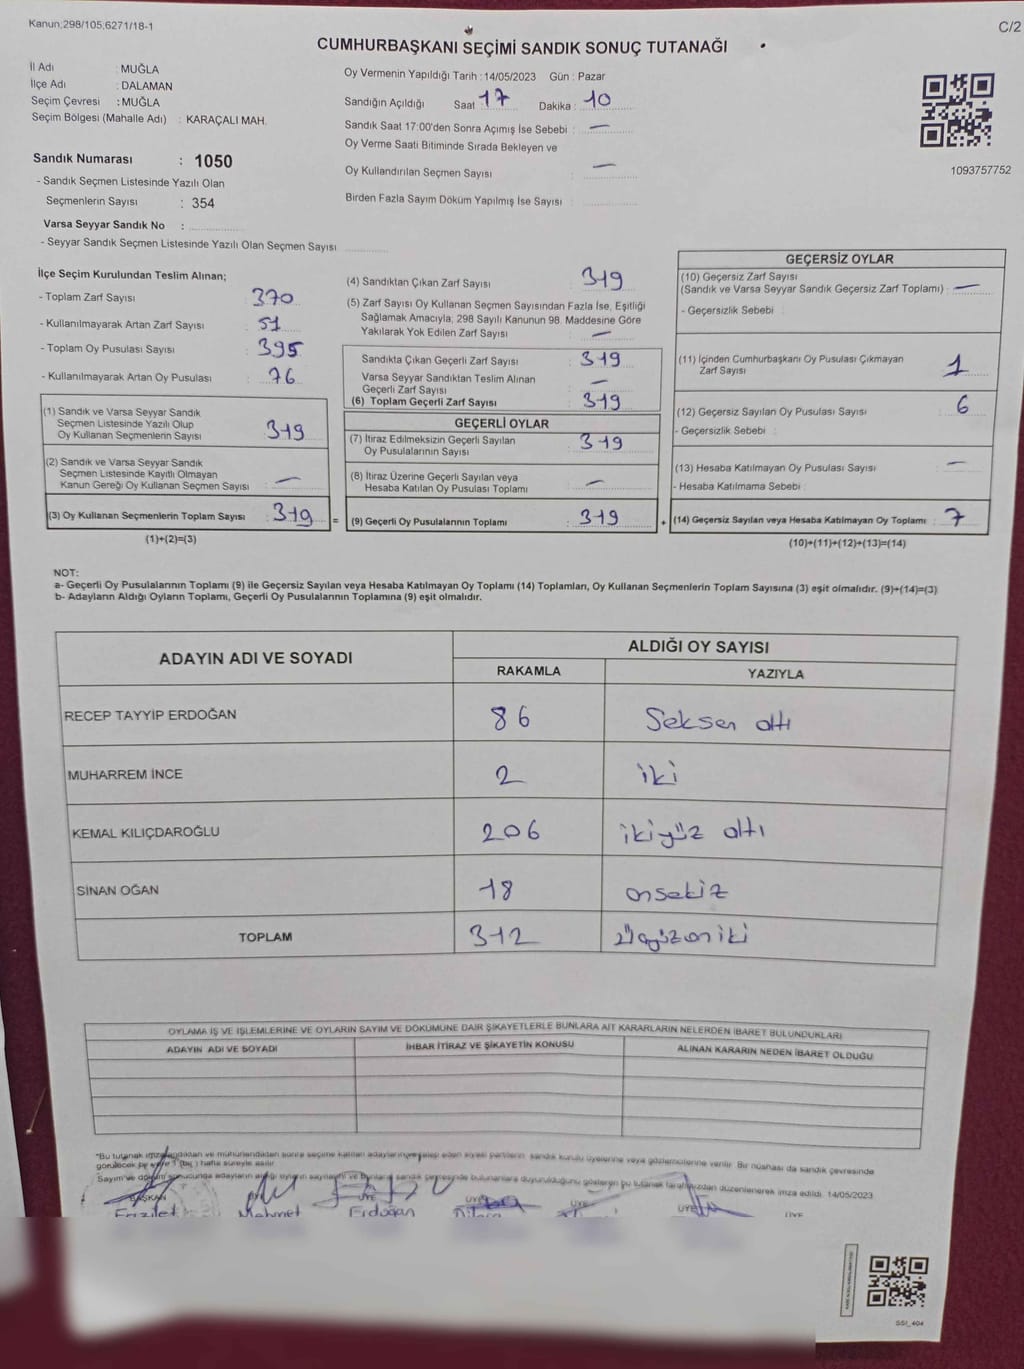 Kanun;298/105,6271/18-1
C/2
CUMHURBAŞKANI SEÇİMİ SANDIK SONUÇ TUTANAĞI
İl Adı : MUĞLA
İlçe Adı : DALAMAN
Seçim Çevresi : MUĞLA
Seçim Bölgesi (Mahalle Adı) : KARAÇALI MAH.
Sandık Numarası : 1050
- Sandık Seçmen Listesinde Yazılı Olan
Seçmenlerin Sayısı : 354
Varsa Seyyar Sandık No :
- Seyyar Sandık Seçmen Listesinde Yazılı Olan Seçmen Sayısı
Oy Vermenin Yapıldığı Tarih : 14/05/2023 Gün : Pazar
Sandığın Açıldığı Saat 17 Dakika : 10
Sandık Saat 17:00'den Sonra Açımış İse Sebebi : —
Oy Verme Saati Bitiminde Sırada Bekleyen ve
Oy Kullandırılan Seçmen Sayısı : —
Birden Fazla Sayım Döküm Yapılmış İse Sayısı :
1093757752
İlçe Seçim Kurulundan Teslim Alınan;
- Toplam Zarf Sayısı : 370
- Kullanılmayarak Artan Zarf Sayısı : 51
- Toplam Oy Pusulası Sayısı : 395
- Kullanılmayarak Artan Oy Pusulası : 76
(1) Sandık ve Varsa Seyyar Sandık
Seçmen Listesinde Yazılı Olup
Oy Kullanan Seçmenlerin Sayısı : 319
(2) Sandık ve Varsa Seyyar Sandık
Seçmen Listesinde Kayıtlı Olmayan
Kanun Gereği Oy Kullanan Seçmen Sayısı : —
(3) Oy Kullanan Seçmenlerin Toplam Sayısı : 319
(1)+(2)=(3)
(4) Sandıktan Çıkan Zarf Sayısı : 319
(5) Zarf Sayısı Oy Kullanan Seçmen Sayısından Fazla İse, Eşitliği
Sağlamak Amacıyla, 298 Sayılı Kanunun 98. Maddesine Göre
Yakılarak Yok Edilen Zarf Sayısı : —
Sandıkta Çıkan Geçerli Zarf Sayısı : 319
Varsa Seyyar Sandıktan Teslim Alınan
Geçerli Zarf Sayısı : —
(6) Toplam Geçerli Zarf Sayısı : 319
GEÇERLİ OYLAR
(7) İtiraz Edilmeksizin Geçerli Sayılan
Oy Pusulalarının Sayısı : 319
(8) İtiraz Üzerine Geçerli Sayılan veya
Hesaba Katılan Oy Pusulası Toplamı : —
= (9) Geçerli Oy Pusulalarının Toplamı : 319
GEÇERSİZ OYLAR
(10) Geçersiz Zarf Sayısı
(Sandık ve Varsa Seyyar Sandık Geçersiz Zarf Toplamı) : —
- Geçersizlik Sebebi :
(11) İçinden Cumhurbaşkanı Oy Pusulası Çıkmayan
Zarf Sayısı : 1
(12) Geçersiz Sayılan Oy Pusulası Sayısı : 6
- Geçersizlik Sebebi :
(13) Hesaba Katılmayan Oy Pusulası Sayısı : —
- Hesaba Katılmama Sebebi :
+ (14) Geçersiz Sayılan veya Hesaba Katılmayan Oy Toplamı : 7
(10)+(11)+(12)+(13)=(14)
NOT:
a- Geçerli Oy Pusulalarının Toplamı (9) ile Geçersiz Sayılan veya Hesaba Katılmayan Oy Toplamı (14) Toplamları, Oy Kullanan Seçmenlerin Toplam Sayısına (3) eşit olmalıdır. (9)+(14)=(3)
b- Adayların Aldığı Oyların Toplamı, Geçerli Oy Pusulalarının Toplamına (9) eşit olmalıdır.
ADAYIN ADI VE SOYADI ALDIĞI OY SAYISI
RAKAMLA YAZIYLA
RECEP TAYYİP ERDOĞAN 86 Seksen altı
MUHARREM İNCE 2 iki
KEMAL KILIÇDAROĞLU 206 ikiyüz altı
SİNAN OĞAN 18 onsekiz
TOPLAM 312 üçyüzoniki
OYLAMA İŞ VE İŞLEMLERİNE VE OYLARIN SAYIM VE DÖKÜMÜNE DAİR ŞİKAYETLERLE BUNLARA AİT KARARLARIN NELERDEN İBARET BULUNDUKLARI
ADAYIN ADI VE SOYADI İHBAR İTİRAZ VE ŞİKAYETİN KONUSU ALINAN KARARIN NEDEN İBARET OLDUĞU
*Bu tutanak imzalandıktan ve mühürlendikten sonra seçime katılan adayların siyasi partilerin sandık kurulu üyelerine veya gözlemcilerine verilir. Bir nüshası da sandık çevresinde
görülecek bir yere 1 (bir) hafta süreyle asılır.
Sayım ve döküm sonucunda adayların aldığı oyların sayıları bulunanlara duyurulduğunu gösteren bu tutanak tarafımızdan düzenlenerek imza edildi. 14/05/2023
BAŞKAN ÜYE ÜYE ÜYE ÜYE ÜYE ÜYE
Mehmet Erdoğan
SSI_404